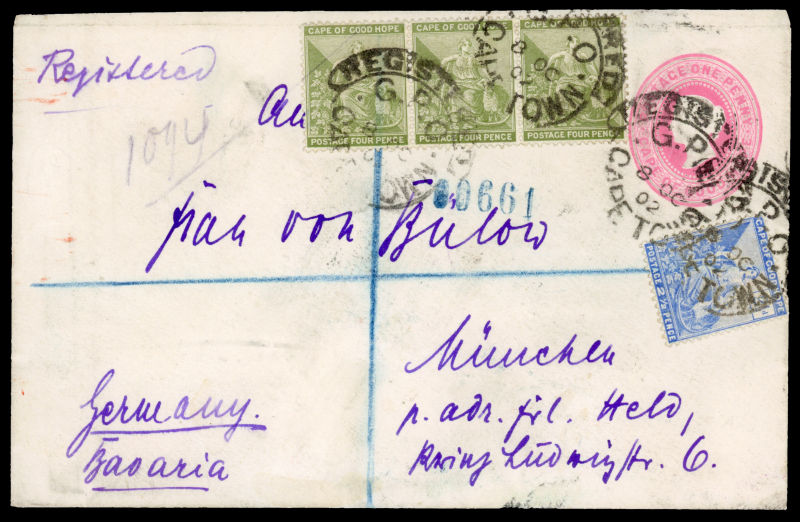 CAPE OF GOOD HOPE CAPE OF GOOD HOPE CAPE OF GOOD HOPE
POSTAGE FOUR PENCE POSTAGE FOUR PENCE POSTAGE FOUR PENCE
Registered
1094
An
REGISTERED G.P.O. CAPE TOWN
8 OC 02
00661
Frau von Bülow
CAPE OF GOOD HOPE
POSTAGE 2½ PENCE
München
p. adr. Frl. Held,
Prinz Ludwigstr. 6.
Germany.
Bavaria